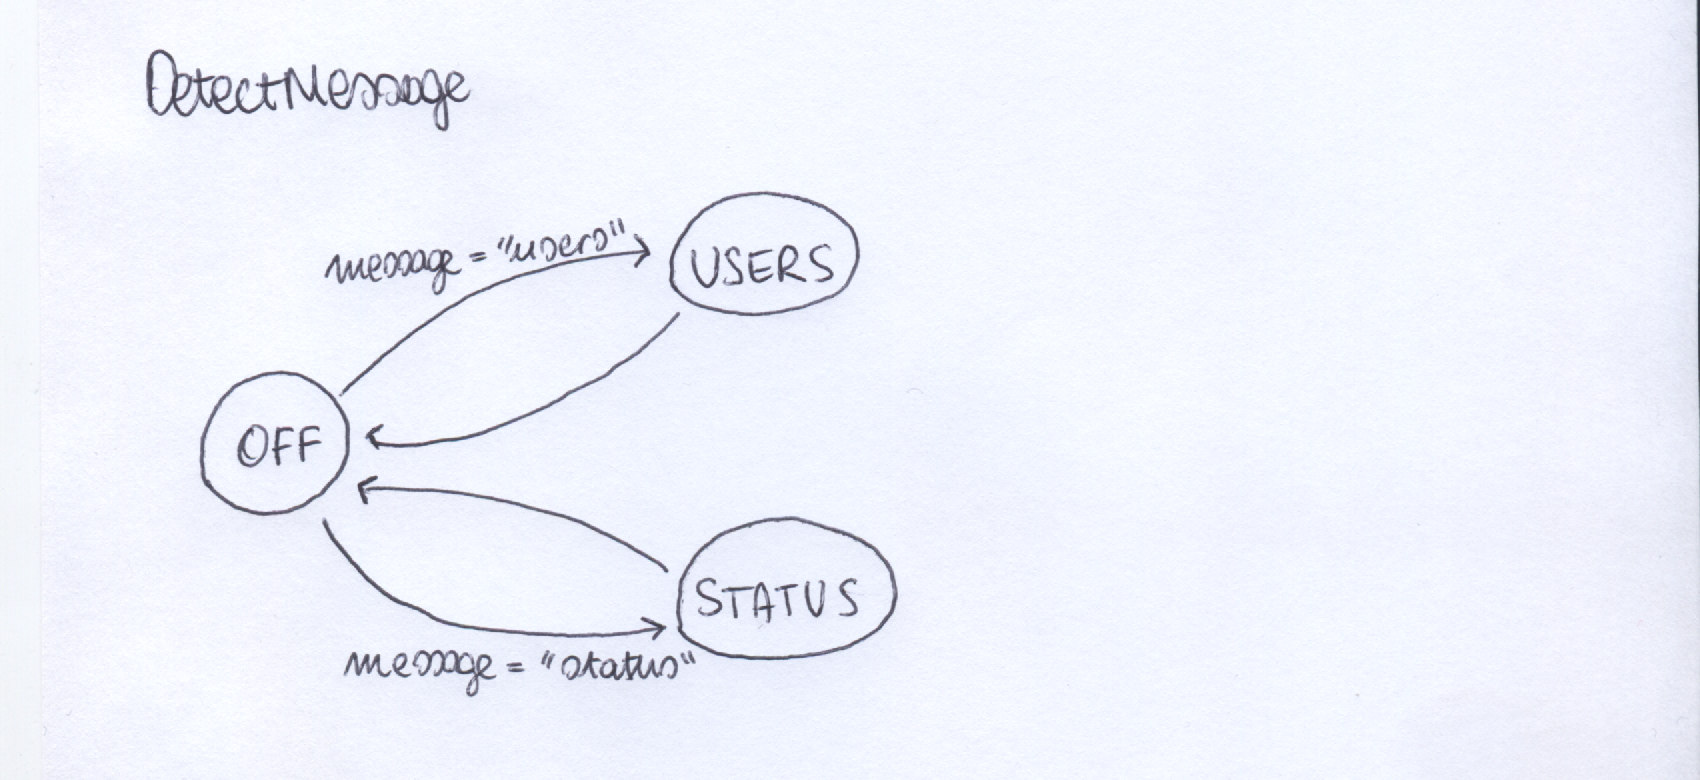 DetectMessage
message = "users"
USERS
OFF
STATUS
message = "status"